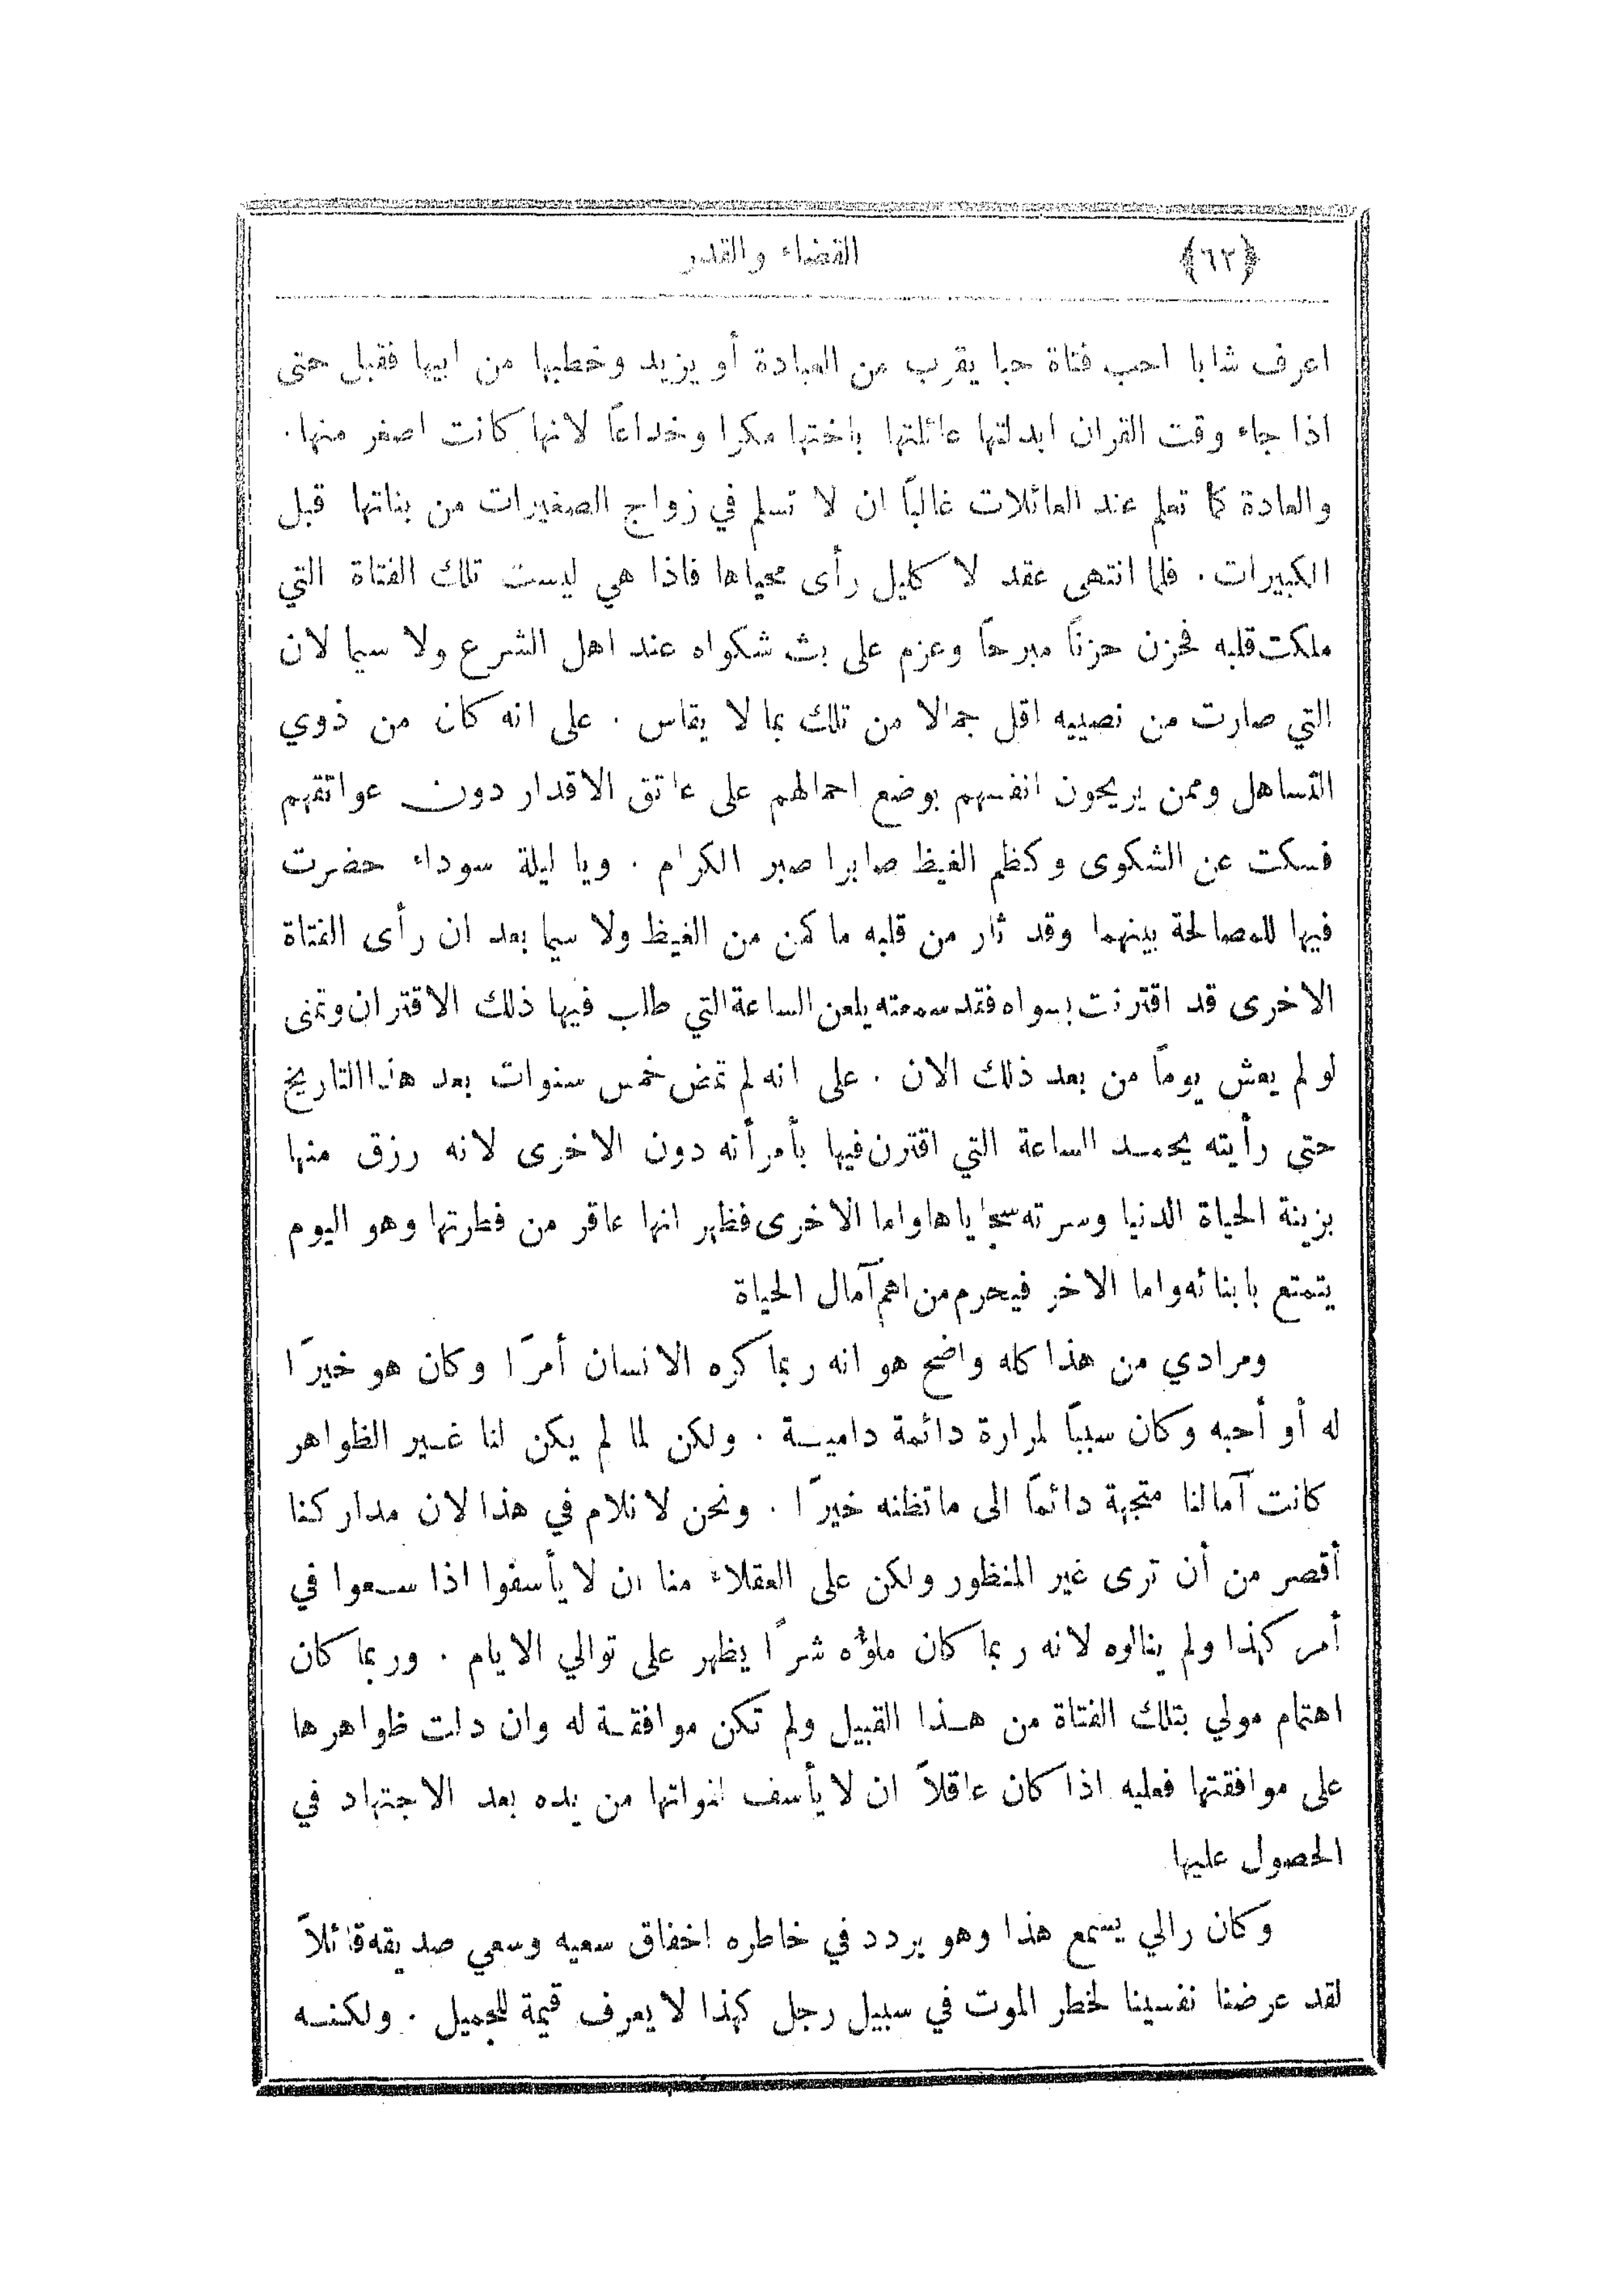 ﴿٦٢﴾ القضاء والقدر
اعرف شابا احب فتاة حبا يقرب من العبادة أو يزيد وخطبها من ابيها فقبل حتى
اذا جاء وقت القران ابدلتها عائلتها باختها مكرا وخداعاً لانها كانت اصغر منها .
والعادة كما تعلم عند العائلات غالباً ان لا تسلم في زواج الصغيرات من بناتها قبل
الكبيرات . فلما انتهى عقد لا كليل رأى محياها فاذا هي ليست تلك الفتاة التي
ملكت قلبه فحزن حزناً مبرحاً وعزم على بث شكواه عند اهل الشرع ولا سيما لان
التي صارت من نصيبه اقل جمالا من تلك بما لا يقاس . على انه كان من ذوي
التساهل وممن يريحون انفسهم بوضع احمالهم على عاتق الاقدار دون عواتقهم
فسكت عن الشكوى وكظم الغيظ صابرا صبر الكرام . ويا ليلة سوداء حضرت
فيها للمصالحة بينهما وقد ثار من قلبه ما كمن من الغيظ ولا سيما بعد ان رأى الفتاة
الاخرى قد اقترنت بسواه فقد سمعته يلعن الساعة التي طلب فيها ذلك الاقتران وتمنى
لو لم يعش يوماً من بعد ذلك الان . على انه لم تمض خمس سنوات بعد هذا التاريخ
حتى رأيته يحمد الساعة التي اقترن فيها بأمرأته دون الاخرى لانه رزق منها
بزينة الحياة الدنيا وسرته سجاياها واما الاخرى فظهر انها عاقر من فطرتها وهو اليوم
يتمتع بابنائه واما الاخر فيحرم من اهم آمال الحياة
ومرادي من هذا كله واضح هو انه ربما كره الانسان أمرًا وكان هو خيرًا
له أو أحبه وكان سبباً لمرارة دائمة دامية . ولكن لما لم يكن لنا غير الظواهر
كانت آمالنا متجهة دائماً الى ما نظنه خيرًا . ونحن لا نلام في هذا لان مداركنا
أقصر من أن ترى غير المنظور ولكن على العقلاء منا ان لا يأسفوا اذا سعوا في
أمر كهذا ولم ينالوه لانه ربما كان ملؤه شرًا يظهر على توالي الايام . وربما كان
اهتمام مولي بتلك الفتاة من هذا القبيل ولم تكن موافقة له وان دلت ظواهرها
على موافقتها فعليه اذا كان عاقلاً ان لا يأسف لفواتها من يده بعد الاجتهاد في
الحصول عليها
وكان رالي يسمع هذا وهو يردد في خاطره اخفاق سعيه وسعي صديقه قائلاً
لقد عرضنا نفسينا لخطر الموت في سبيل رجل كهذا لا يعرف قيمة للجميل . ولكنه